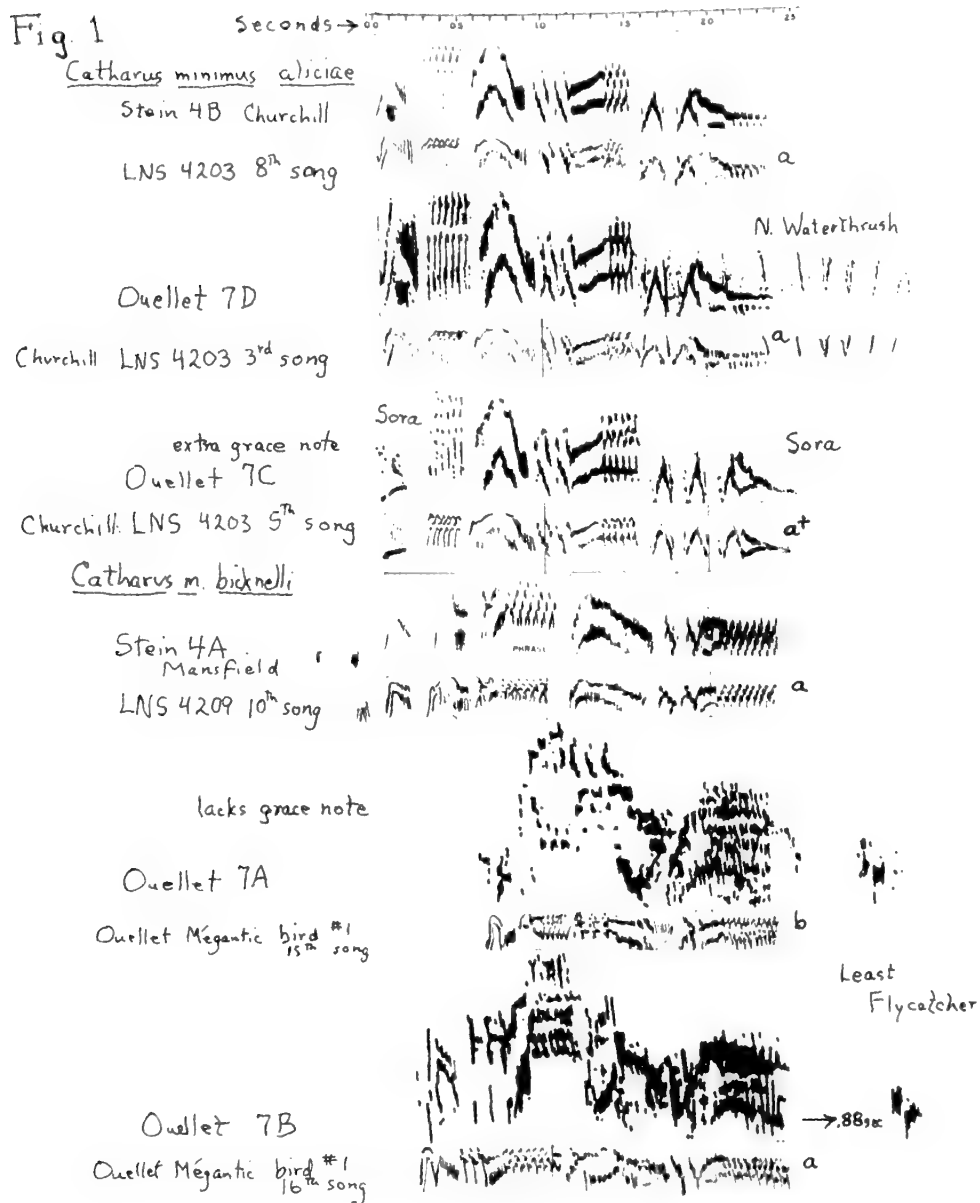 Fig. 1
Seconds → 0.0 0.5 1.0 1.5 2.0 2.5
Catharus minimus aliciae
Stein 4B Churchill
LNS 4203 8th song
a
N. Waterthrush
Ouellet 7D
Churchill LNS 4203 3rd song
a
Sora
extra grace note
Sora
Ouellet 7C
Churchill LNS 4203 5th song
a+
Catharus m. bicknelli
Stein 4A
PHRASE
Mansfield
LNS 4209 10th song
a
lacks grace note
Ouellet 7A
Ouellet Mégantic bird #1
15th song
b
Least
Flycatcher
Ouellet 7B
→ .88sec
Ouellet Mégantic bird #1
16th song
a